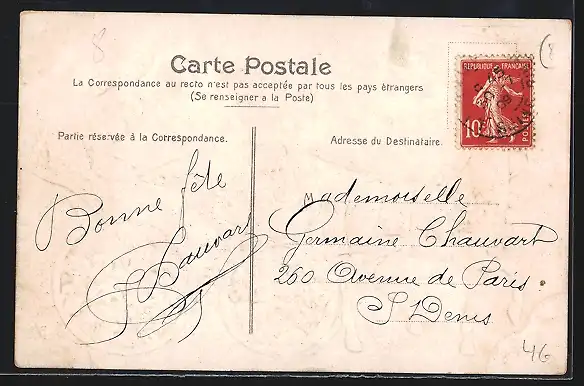 8
Carte Postale
La Correspondance au recto n'est pas acceptée par tous les pays étrangers
(Se renseigner a la Poste)
RÉPUBLIQUE FRANÇAISE
10c
POSTES
Partie réservée à la Correspondance.
Adresse du Destinataire.
Bonne fête
Mademoiselle
Germaine Chauvart
260 Avenue de Paris.
St Denis
46